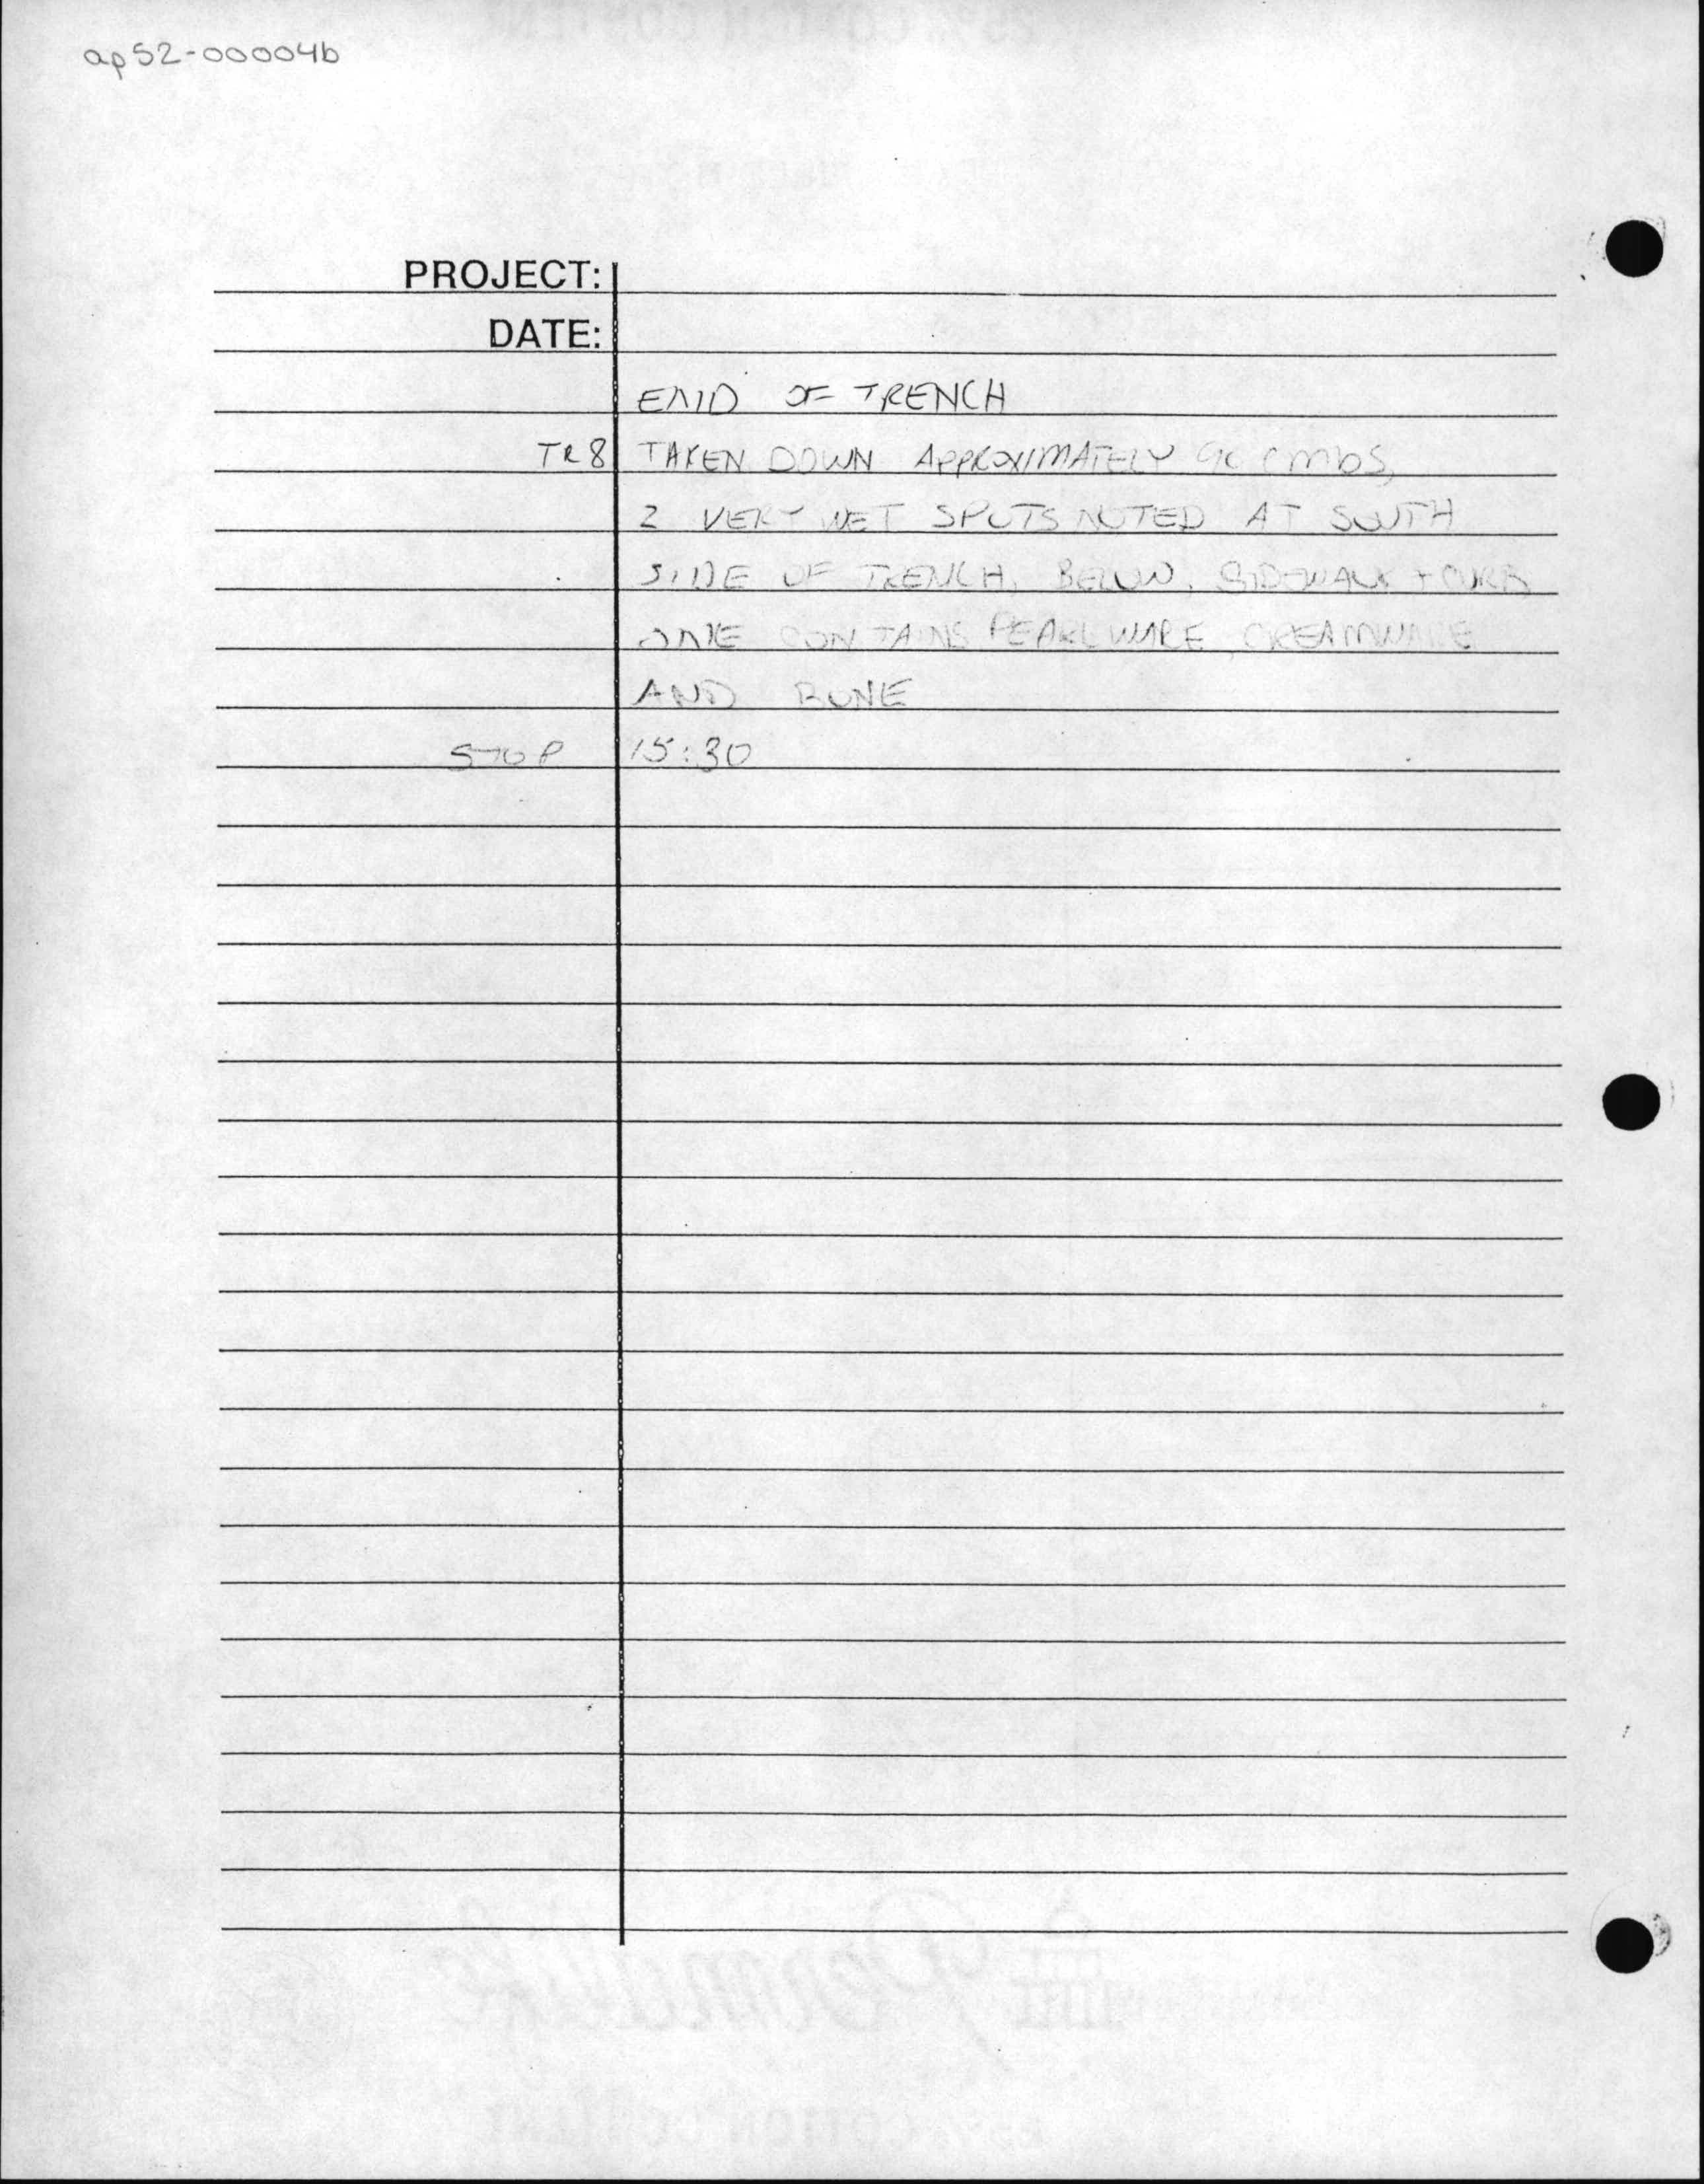 ap52-00004b
PROJECT:
DATE:
END OF TRENCH
TR 8 TAKEN DOWN APPROXIMATELY 90 cmbs,
2 VERY WET SPOTS NOTED AT SOUTH
SIDE OF TRENCH, BELOW, SIDEWALK + CURB
ONE CONTAINS PEARLWARE, CREAMWARE
AND BONE
STOP 15:30
Permalife
25% COTTON CONTENT